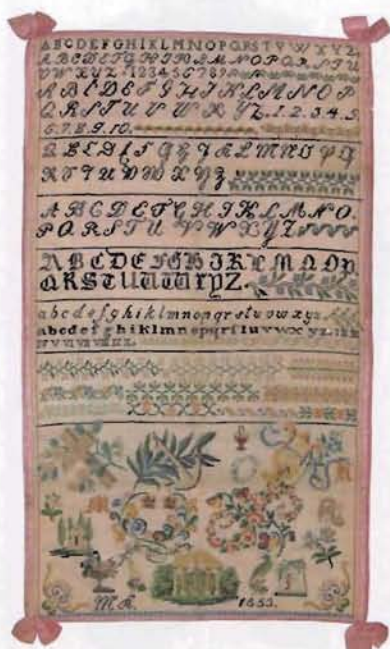 ABCDEFGHIKLMNOPQRSTVWXYZ.
ABCDEFGHIKLMNOPQRSTU
VWXYZ.123456789
ABCDEFGHIKLMNOP
QRSTUVWXYZ.1.2.3.4.5
6.7.8.9.10.
ABCDEFGHIKLMNOPQ
RSTUVWXYZ
ABCDEFGHIKLMNO.
PQRSTUVWXYZ
ABCDEFGHIKLMNOP
QRSTUVWXYZ.
abcdefghiklmnopqrstuvwxyz.
abcdefghiklmnopqrsſtuvwxyz.
M R. 1853.